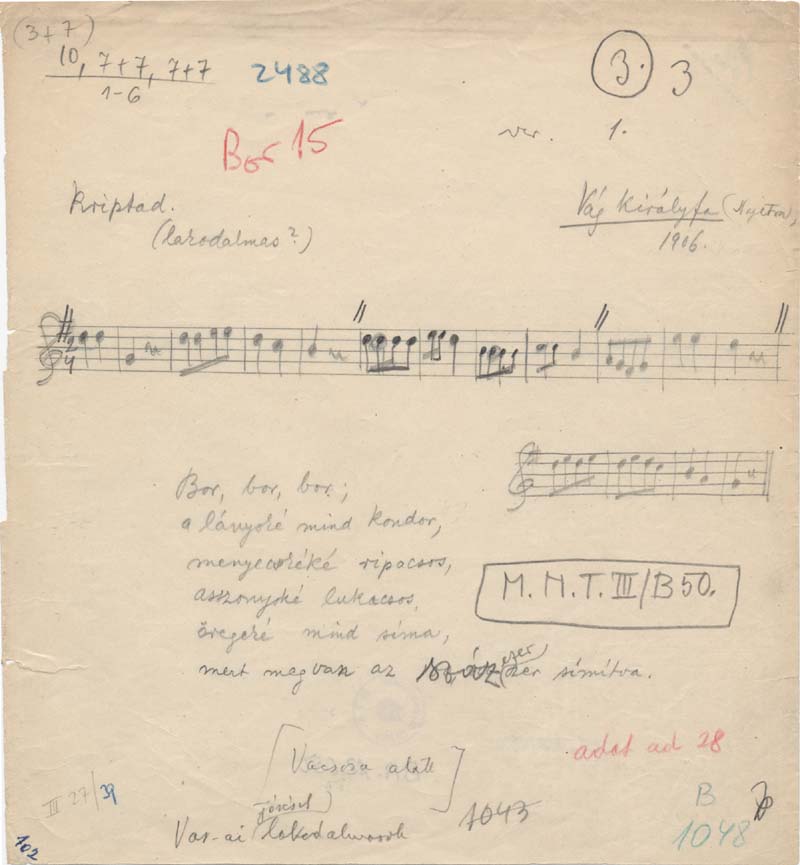 (3+7)
10, 7+7, 7+7
1-6
2488
3. 3
ver. 1.
Bor 15
Kriptad.
(lakodalmas?)
Vág Királyfa (Nyitra),
1906.
2
4
Bor, bor, bor;
a lányoké mind kondor,
menyecskéké ripacsos,
asszonyoké lukacsos,
öregeké mind síma,
mert megvan az ezer símítva.
M. M. T. III/B 50.
adat ad 28
[Vacsora alatt]
III 27/39
102
1043
B
1048